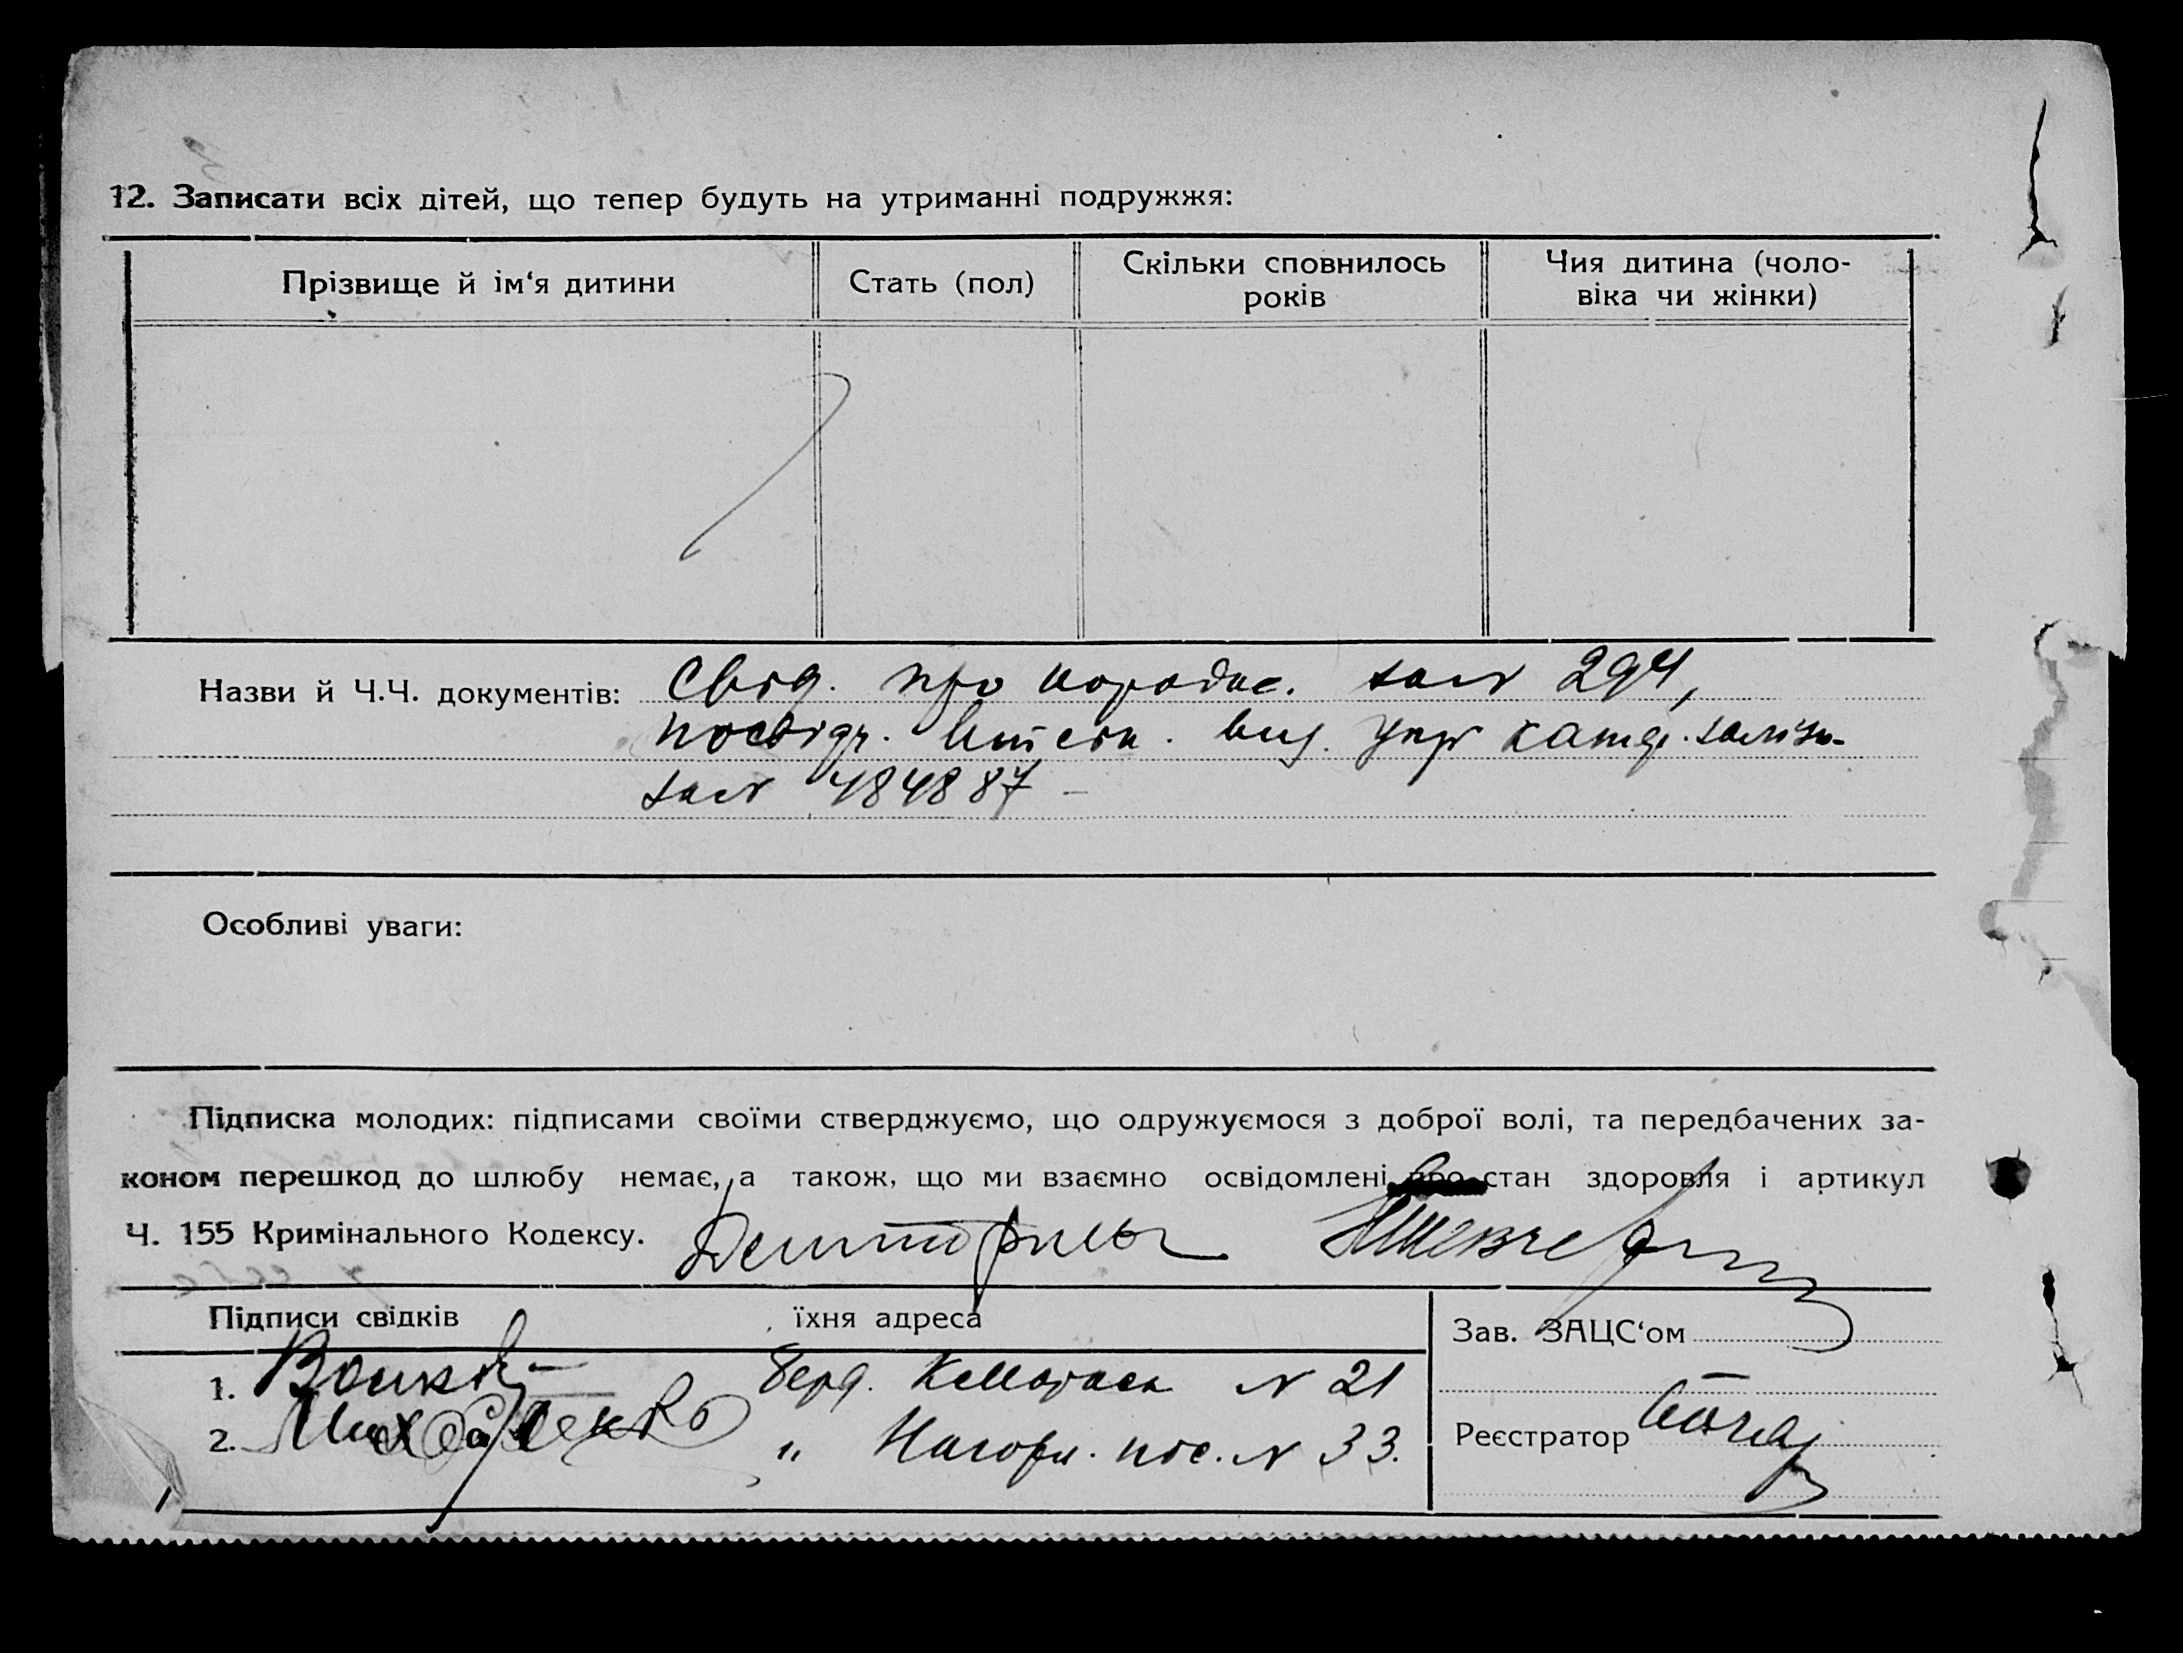 12. Записати всіх дітей, що тепер будуть на утриманні подружжя:
Прізвище й ім‘я дитини
Стать (пол)
Скільки сповнилось
років
Чия дитина (чоло-
віка чи жінки)
Назви й Ч.Ч. документів: Свід. про народж. 294,
посвідч. вид. Упр
484887 –
Особливі уваги:
Підписка молодих: підписами своїми стверджуємо, що одружуємося з доброї волі, та передбачених за-
коном перешкод до шлюбу немає, а також, що ми взаємно освідомлені про стан здоровля і артикул
Ч. 155 Кримінального Кодексу.
Підписи свідків їхня адреса
Зав. ЗАЦС‘ом
1. Берд. N 21
2. " Нагорн. пос. N 33.
Реєстратор